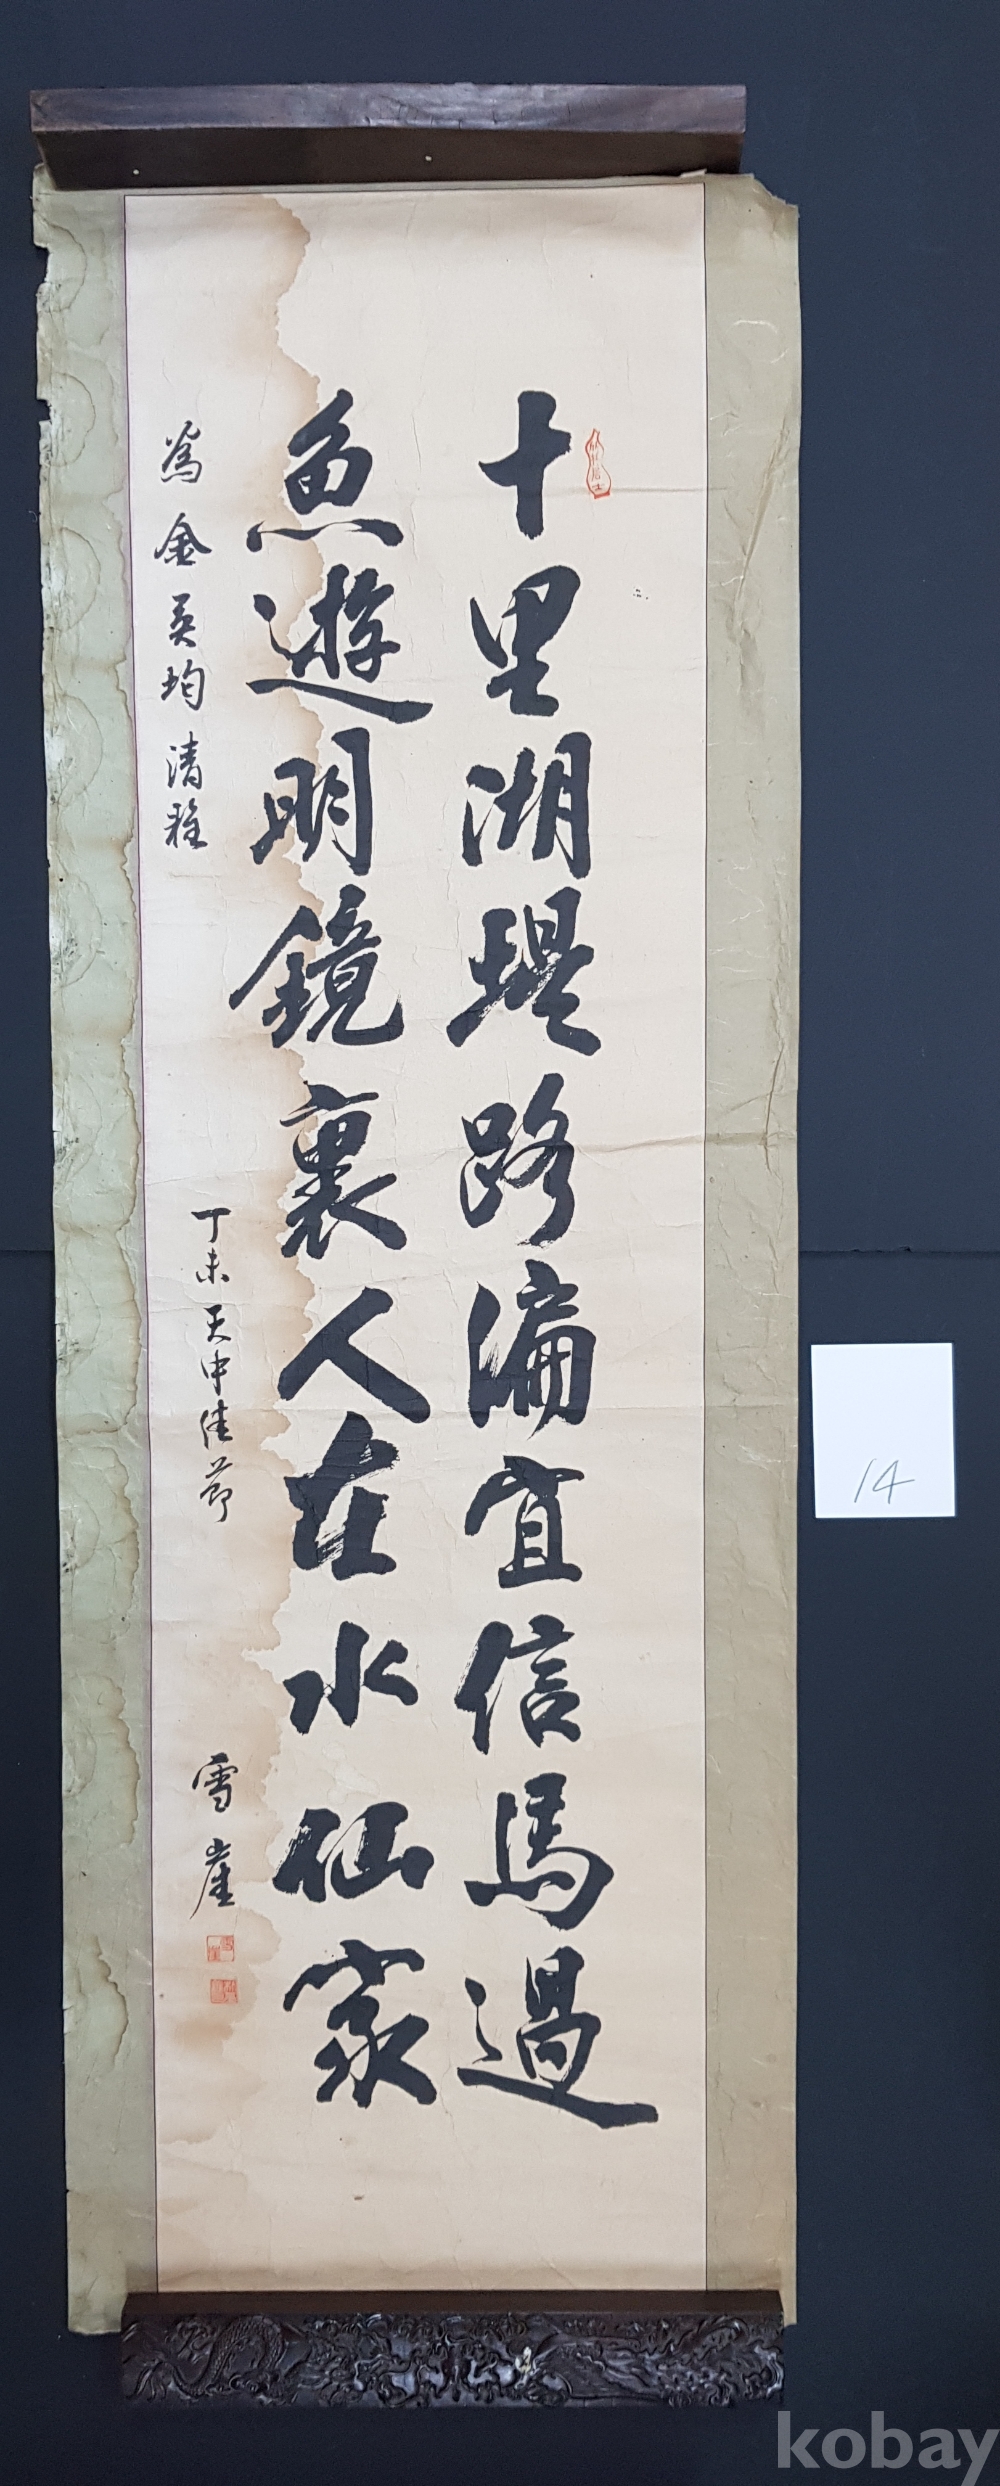 十里湖堤路偏宜信馬過
魚遊明鏡裏人在水仙家
為金英均清雅
丁未天中佳節
雪崖
14
kobay